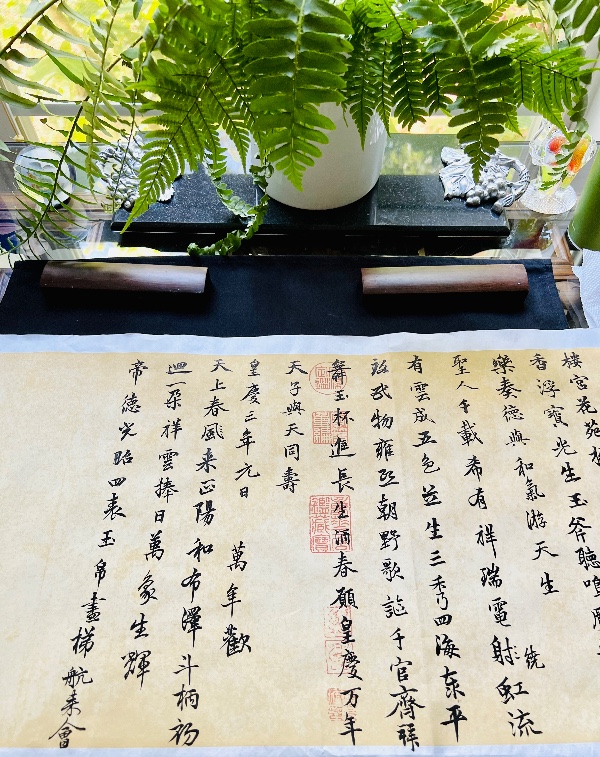 樓宮花苑
香浮寶光生玉斧聽鳴
樂奏德與和氣游天生
聖人千載希有祥瑞電射虹流
繞
有雲成五色芝生三秀四海東平
民物雍熙朝野歌謳千官齊拜
舞玉杯進長生酒春願皇慶万年
天子與天同壽
皇慶三年元日 萬年歡
天上春風来正陽和布澤斗柄初
迴一朵祥雲捧日萬象生輝
帝德光昭四表玉帛盡梯航来會